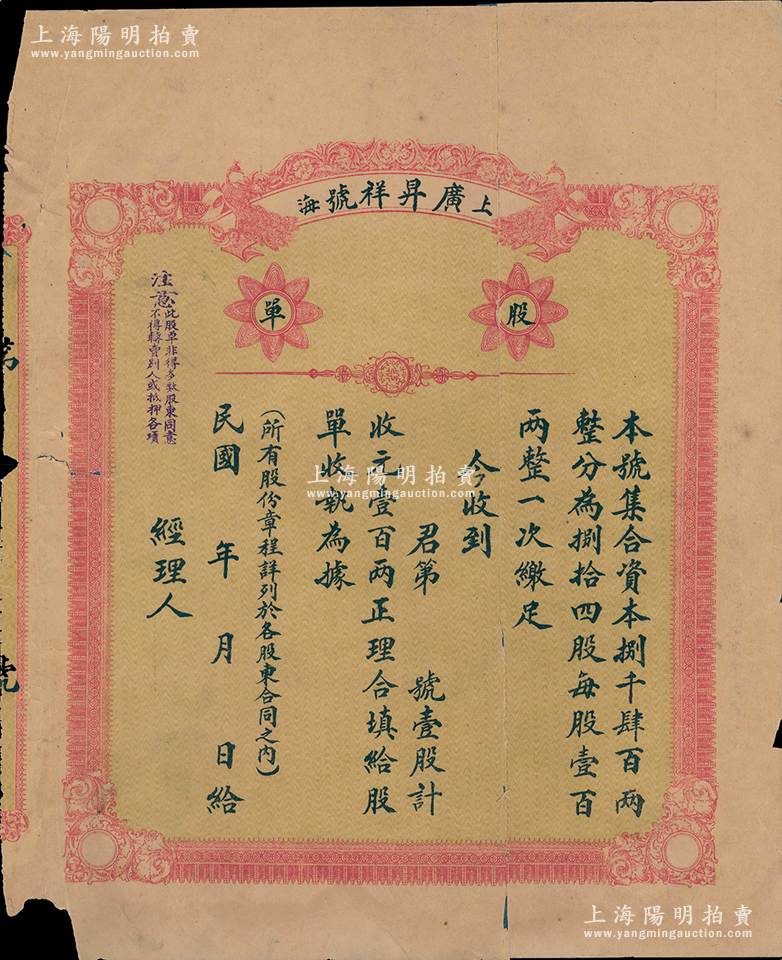 上海陽明拍賣
www.yangmingauction.com
上廣昇祥號海
股單
本號集合資本捌千肆百兩
整分為捌拾四股每股壹百
兩整一次繳足
今收到
君第 號壹股計
收元壹百兩正理合填給股
單收執為據
(所有股份章程詳列於各股東合同之內)
民國 年 月 日給
經理人
注意此股單非得多数股東同意
不得轉賣别人或抵押各項
第 號
上海陽明拍賣
www.yangmingauction.com
上海陽明拍賣
www.yangmingauction.com